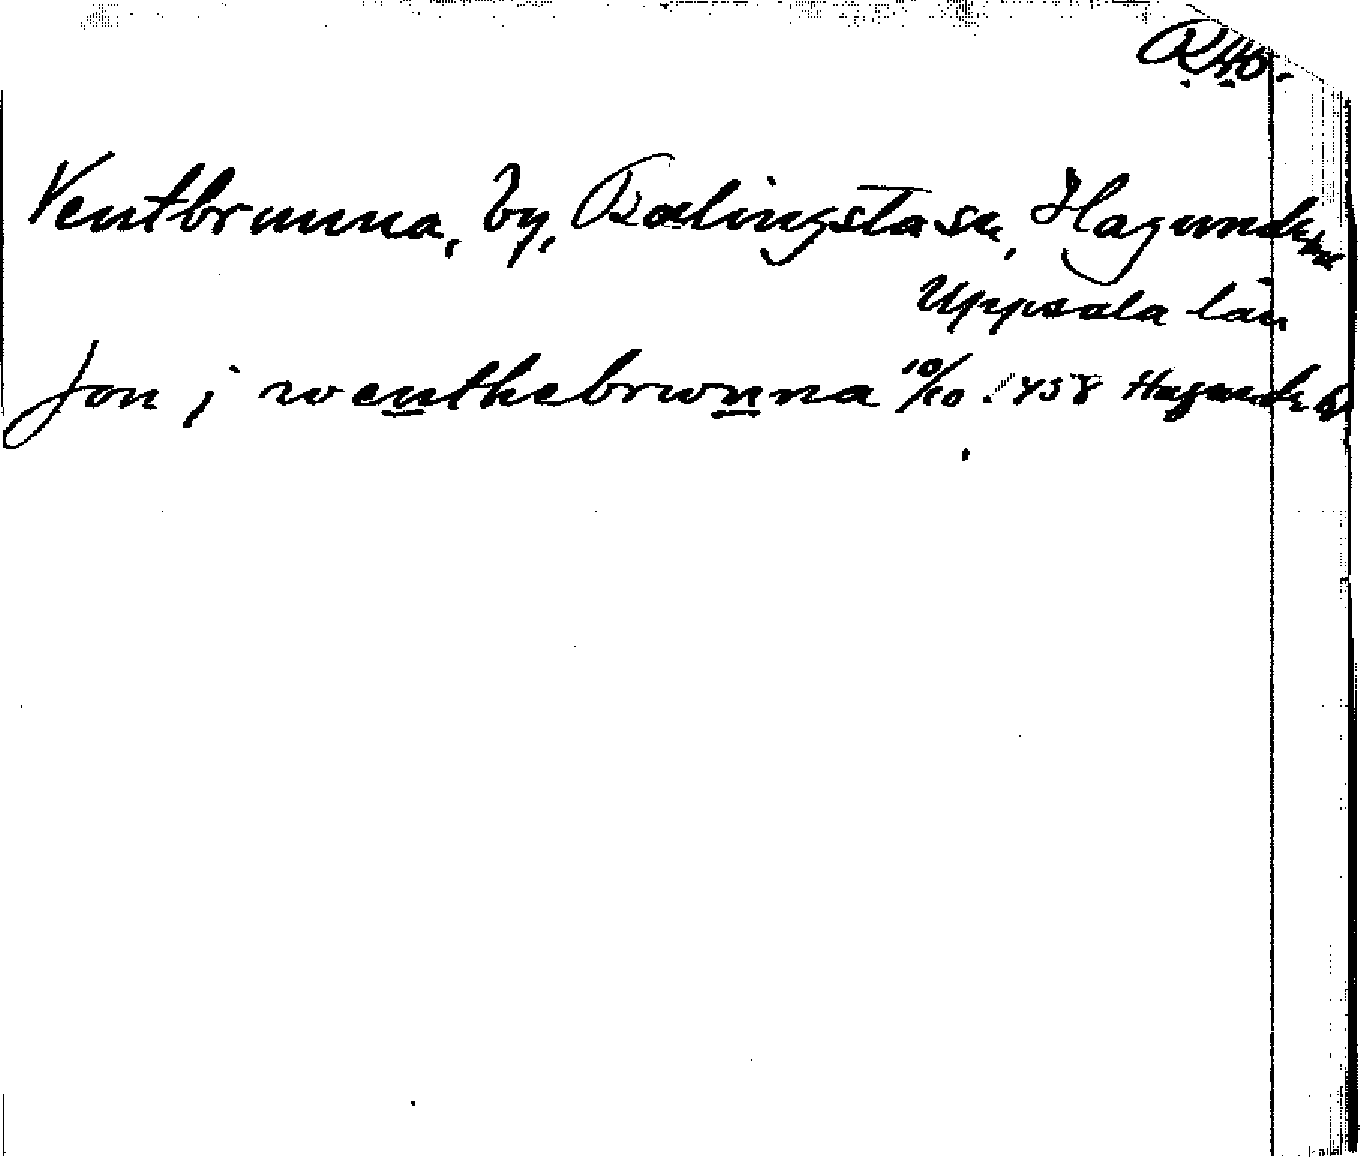 R40.
Ventbrunna, by, Bälingsta sn, Hagunda hd
Uppsala län
Jon j wenthebrwnna 10/10 1458 Hagunda